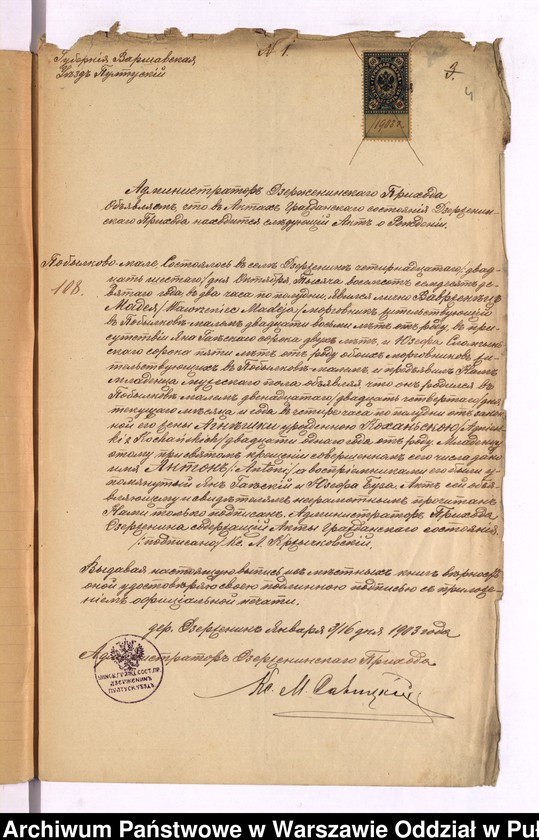 Губернія Варшавская
Уѣздъ Пултускій
N 1.
3.
4
1903 г.
Администраторъ Дзерженинскаго Прихода
Объявляетъ, что въ Актахъ Гражданскаго состоянія Дзерженин-
скаго Прихода находится слѣдующій Актъ о Рожденіи.
Побылково-мале, Состоялось въ селѣ Дзерженинъ четырнадцатаго/двад-
108.
цать шестаго/дня Октября, Тысяча восемсотъ семдесятъ де-
вятаго года, въ два часа по полудни, явился лично Вавржинецъ
Мадея /Wawrzeniec Madeja/ морговникъ жительствующій
въ Побылковѣ-маломъ двадцати восьми лѣтъ отъ роду, въ при-
сутствіи Яна сорока двухъ лѣтъ, и Юзефа
скаго сорока пяти лѣтъ отъ роду обоихъ морговниковъ, жи-
тельствующихъ въ Побылковѣ-маломъ, и предъявилъ Намъ
младенца мужескаго пола, объявляя, что онъ родился въ
Побылковѣ маломъ двѣнадцатаго/двадцать четвертаго/дня
текущаго мѣсяца и года въ четыре часа по полудни отъ закон-
ной его жены Агнѣшки урожденной Коханьскою /Agnisz-
ki z Kochańskich/ двадцати одного года отъ роду. Младенцу
этому при святомъ крещеніи совершенномъ сего числа дано
имя Антонъ /:Antoni:/ а воспріемниками его были у-
помянутый Янъ и Юзефа Буза. Актъ сей объя-
вляющему и свидѣтелямъ неграмотнымъ прочитанъ
Нами только подписанъ. Администраторъ Прихода
Дзерженина содержащій Акты Гражданскаго состоянія
/:подписано/ Кс. Л. Крысковскій.
Выдавая настоящую выпись изъ мѣстныхъ книгъ вѣрность
оной удостовѣряю своею подлинною подписью съ приложе-
ніемъ оффиціальной печати.
дер. Дзерженинъ Января 3/16 дня 1903 года
Администраторъ Дзерженинскаго Прихода
Кс. М. Савицкій
ЧИН. ГРАЖД. СОСТ. ПР.
ДЗЕРЖЕНИНЪ
ПУЛТУСК. УѢЗД.
Archiwum Państwowe w Warszawie Oddział w Puł